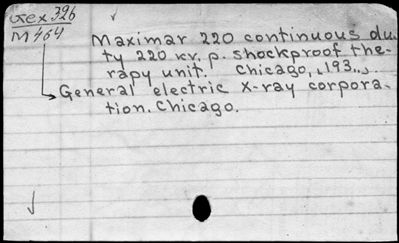 rex.326
M464
Maximar 220 continuous du-
ty 220 kv. p. shockproof the-
rapy unit. Chicago, [193..]
General electric X-ray corpora-
tion. Chicago.